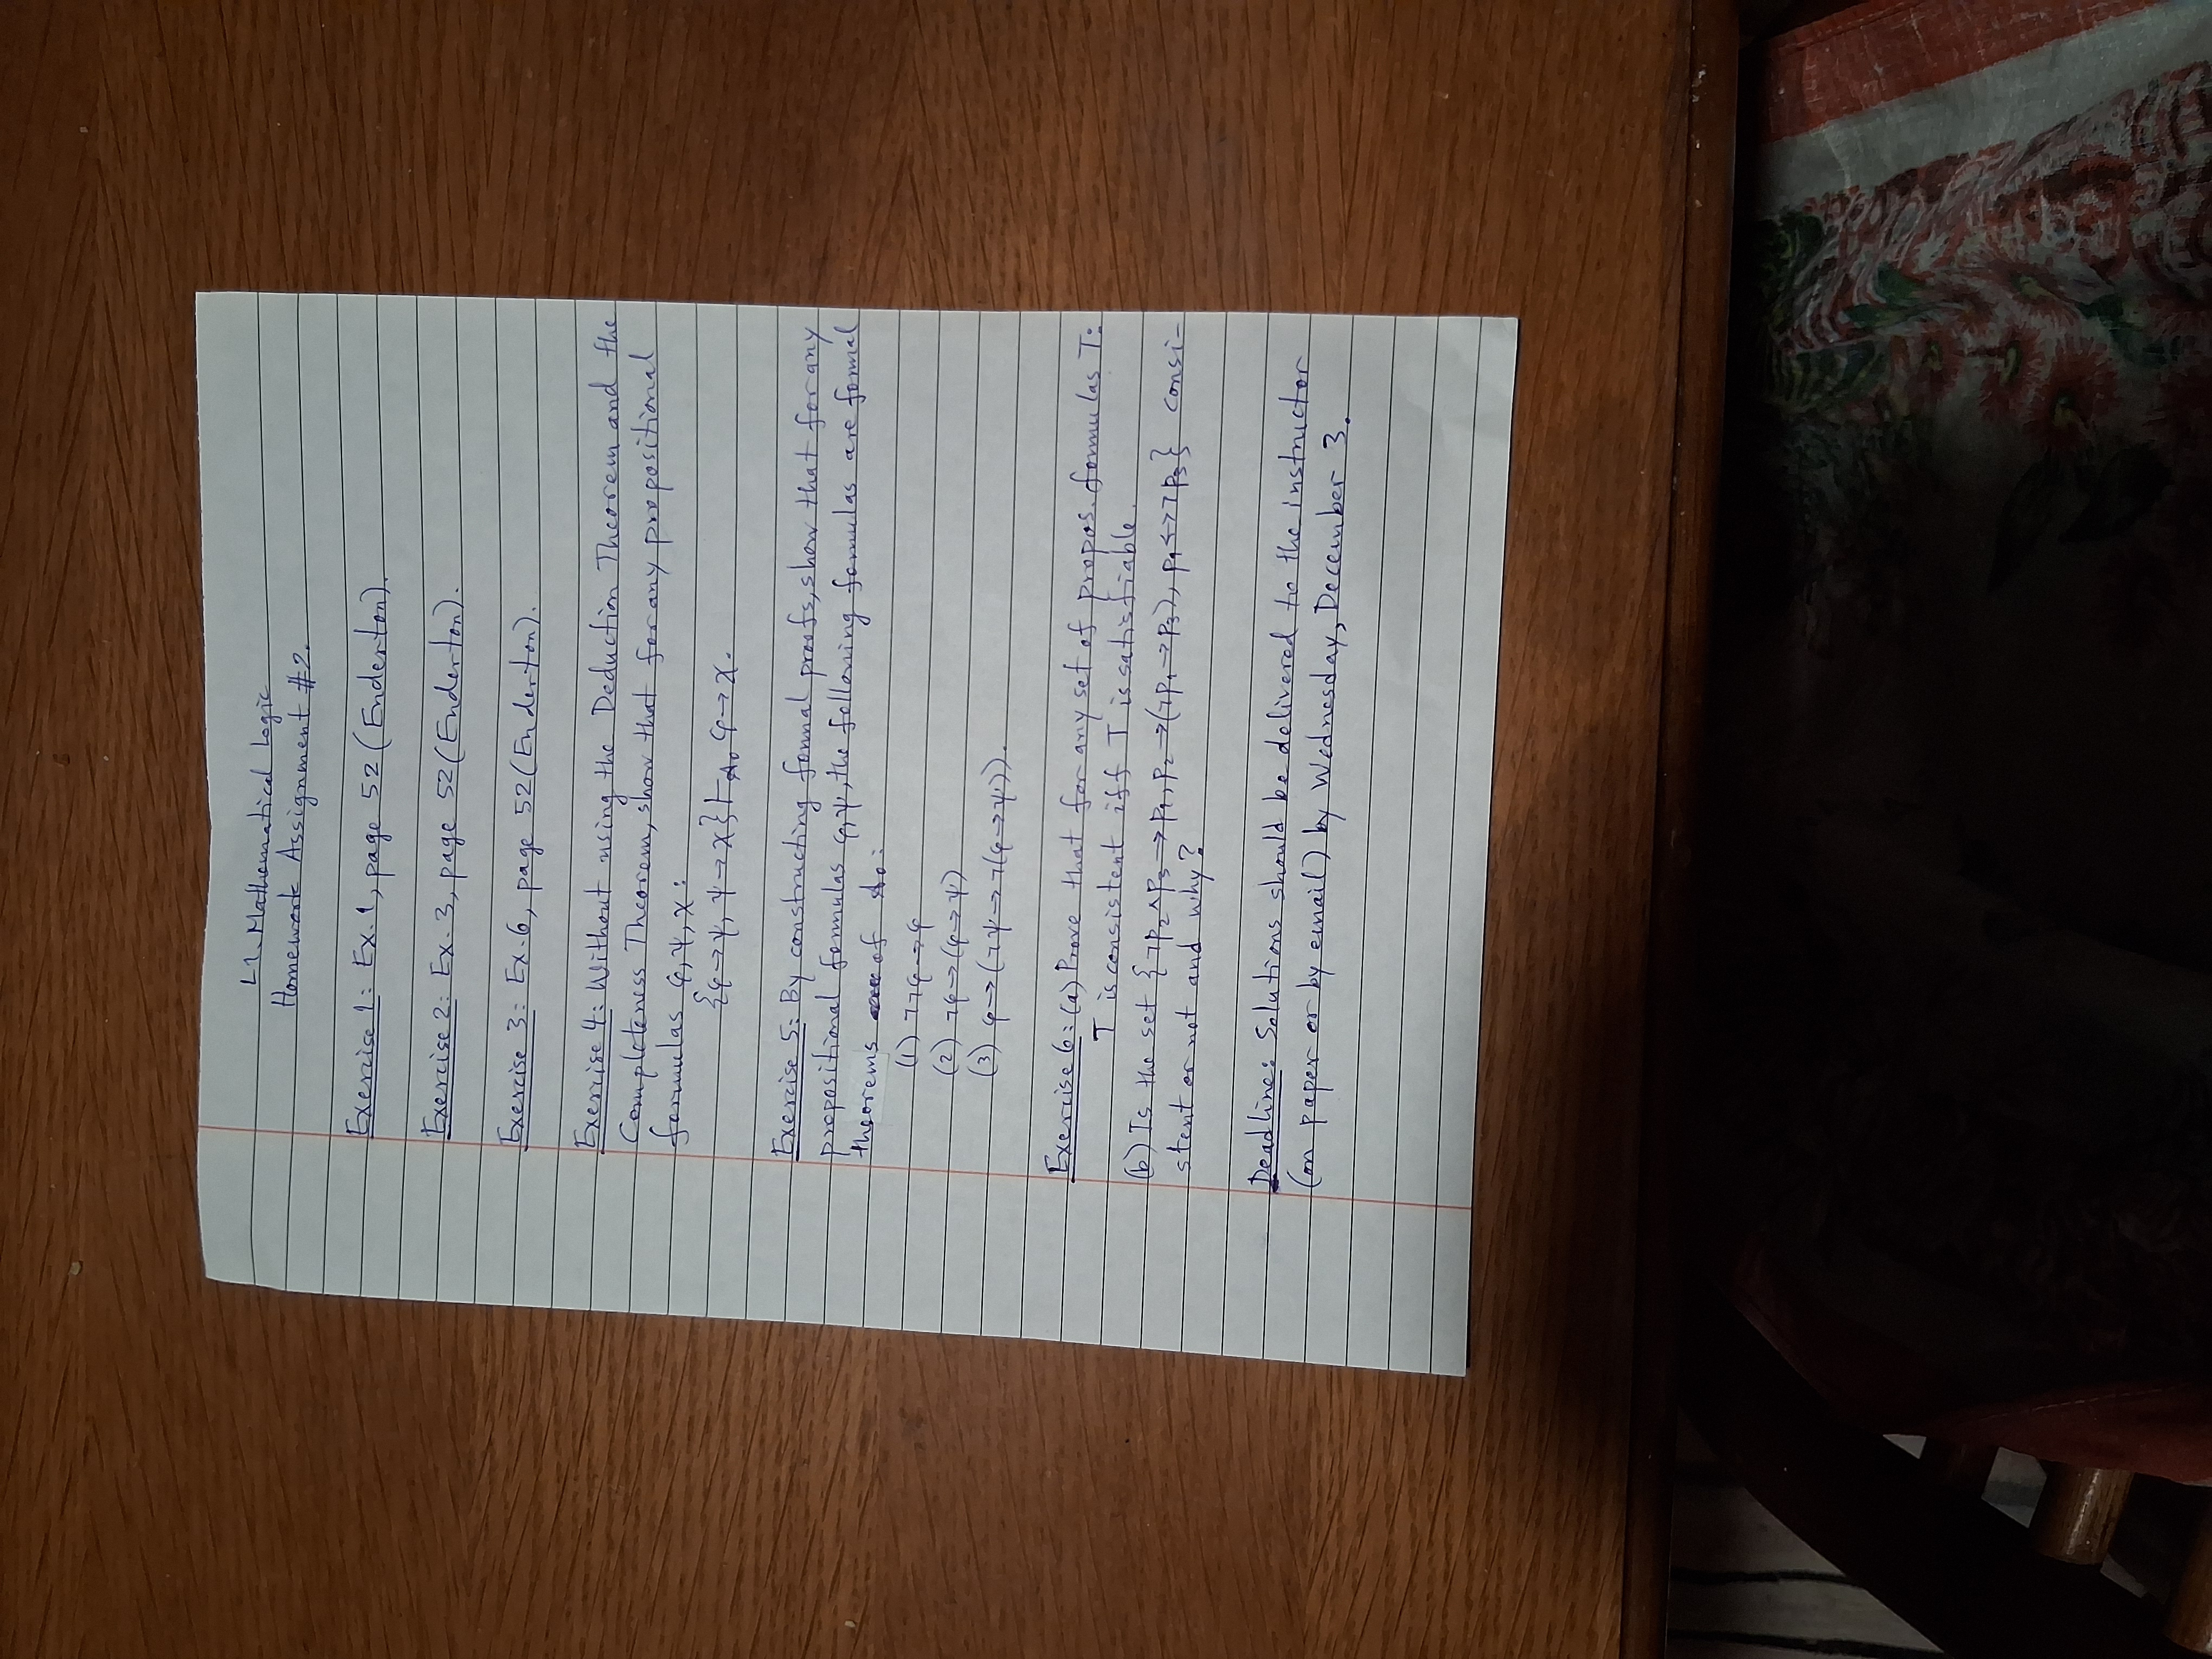 L1. Mathematical Logic
Homework Assignment #2.
Exercise 1: Ex. 1, page 52 (Enderton).
Exercise 2: Ex. 3, page 52 (Enderton).
Exercise 3: Ex. 6, page 52 (Enderton).
Exercise 4: Without using the Deduction Theorem and the
Completeness Theorem, show that for any propositional
formulas φ, ψ, χ:
{φ→ψ, ψ→χ} ⊢ φ→χ.
Exercise 5: By constructing formal proofs, show that for any
propositional formulas φ, ψ, the following formulas are formal
theorems of
(1) ¬¬φ→φ
(2) ¬φ→(φ→ψ)
(3) φ→(¬ψ→¬(φ→ψ)).
Exercise 6: (a) Prove that for any set of propos. formulas T:
T is consistent iff T is satisfiable.
(b) Is the set {¬p₂∧p₃→p₁, p₂→(¬p₁→p₃), p₁↔¬p₃} consi-
stent or not and why?
Deadline: Solutions should be delivered to the instructor
(on paper or by email) by Wednesday, December 3.